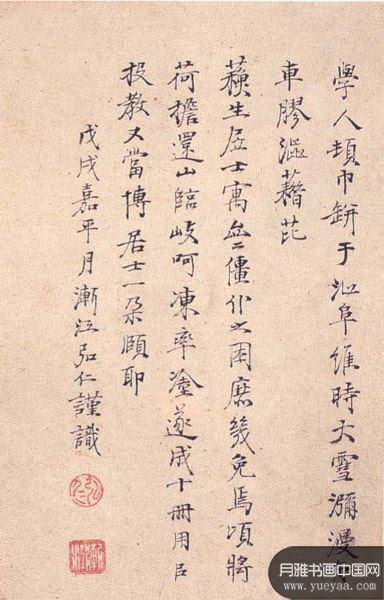 學人巾缾于沚阜維時大雪瀰漫巾
車膠澁藉芘
生居士寓盦僵仆之困庶幾免焉頃將
荷擔還山臨岐呵凍率塗遂成十冊用㠯
投教又當博居士一朵頤耶
戊戌嘉平月漸江弘仁謹識
弘仁
漸江
月雅书画中国网
www.yueyaa.com